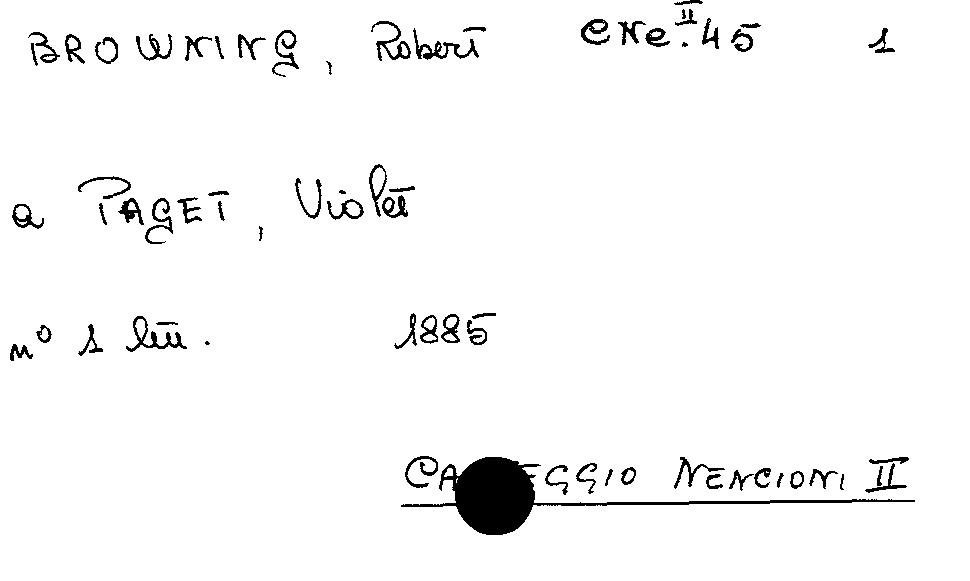 BROWNING, Robert CNe.II.45 1
a PAGET, Violet
n° 1 lett. 1885
NENCIONI II